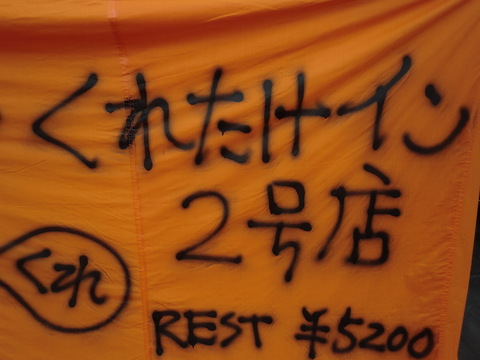 くれたけイン
2号店
くれ
REST ¥5200